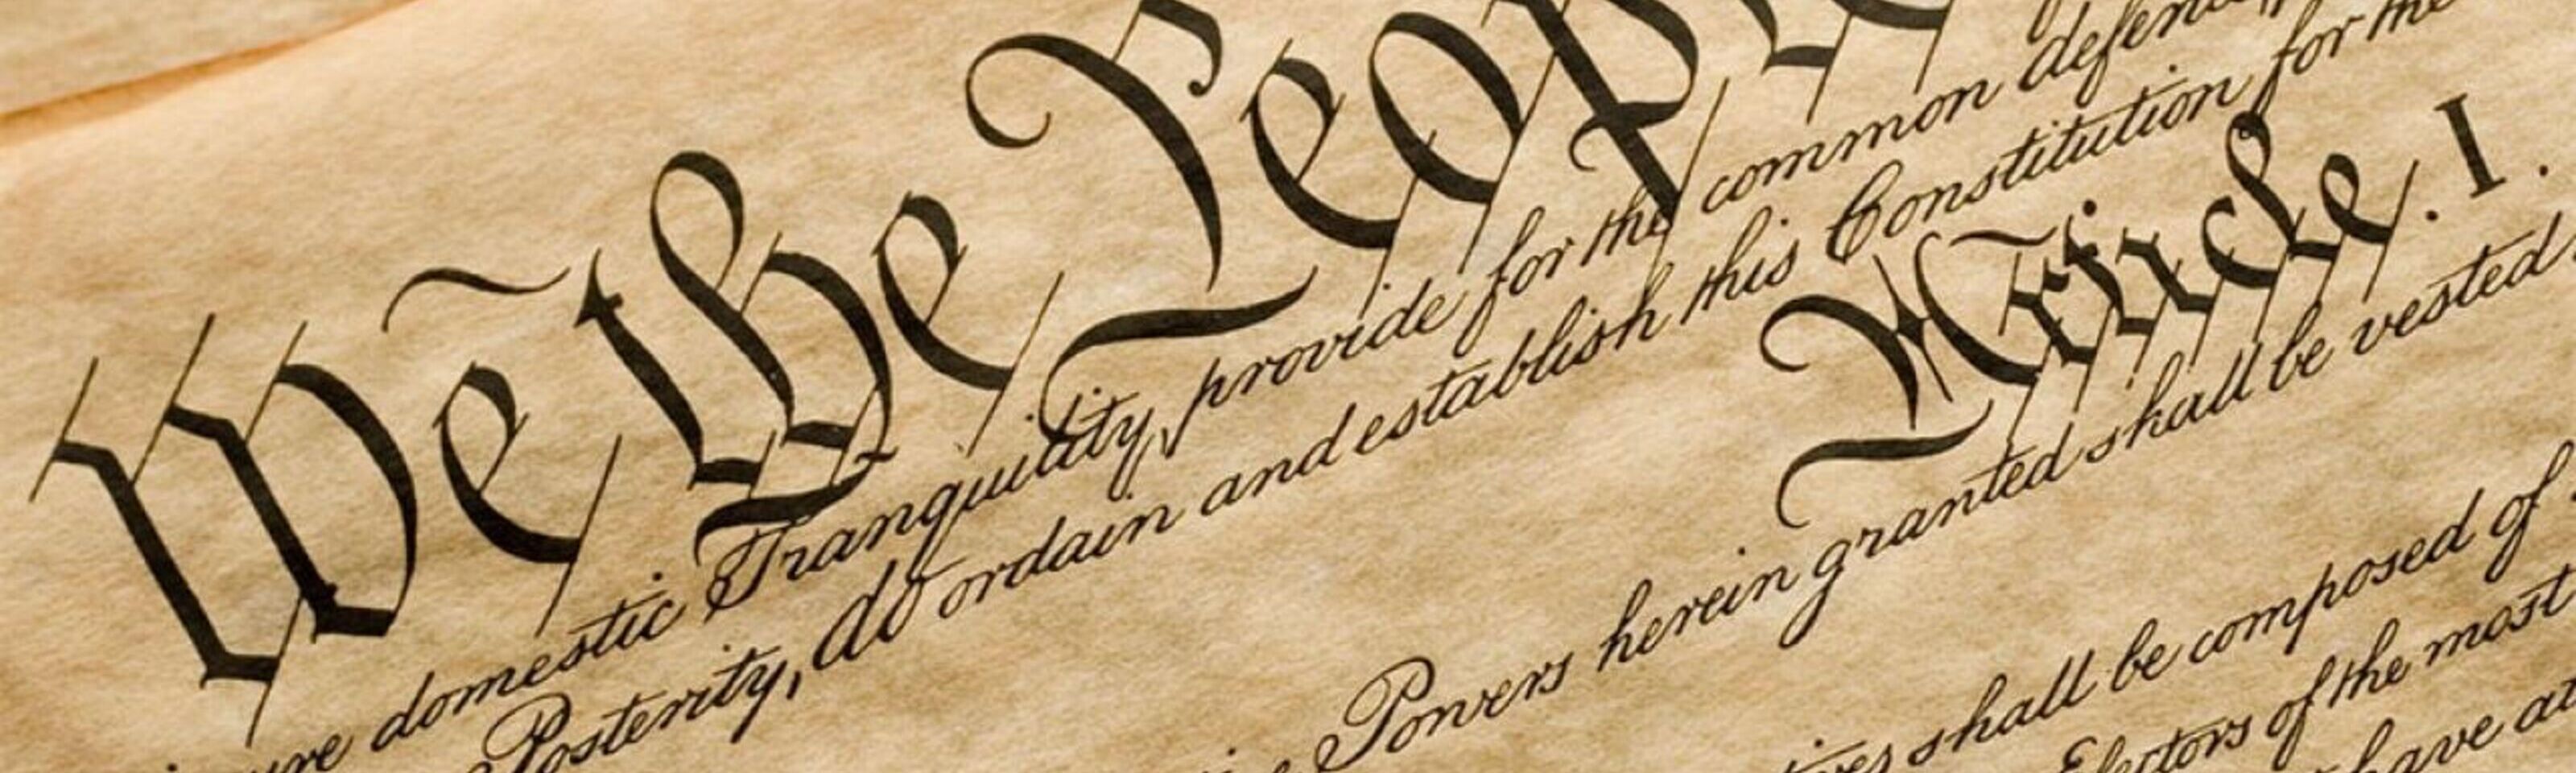 We the People
domestic Tranquility, provide for the common defen
Posterity, do ordain and establish this Constitution for the
Article. I.
Powers herein granted shall be vested
shall be composed of
Electors of the most
have